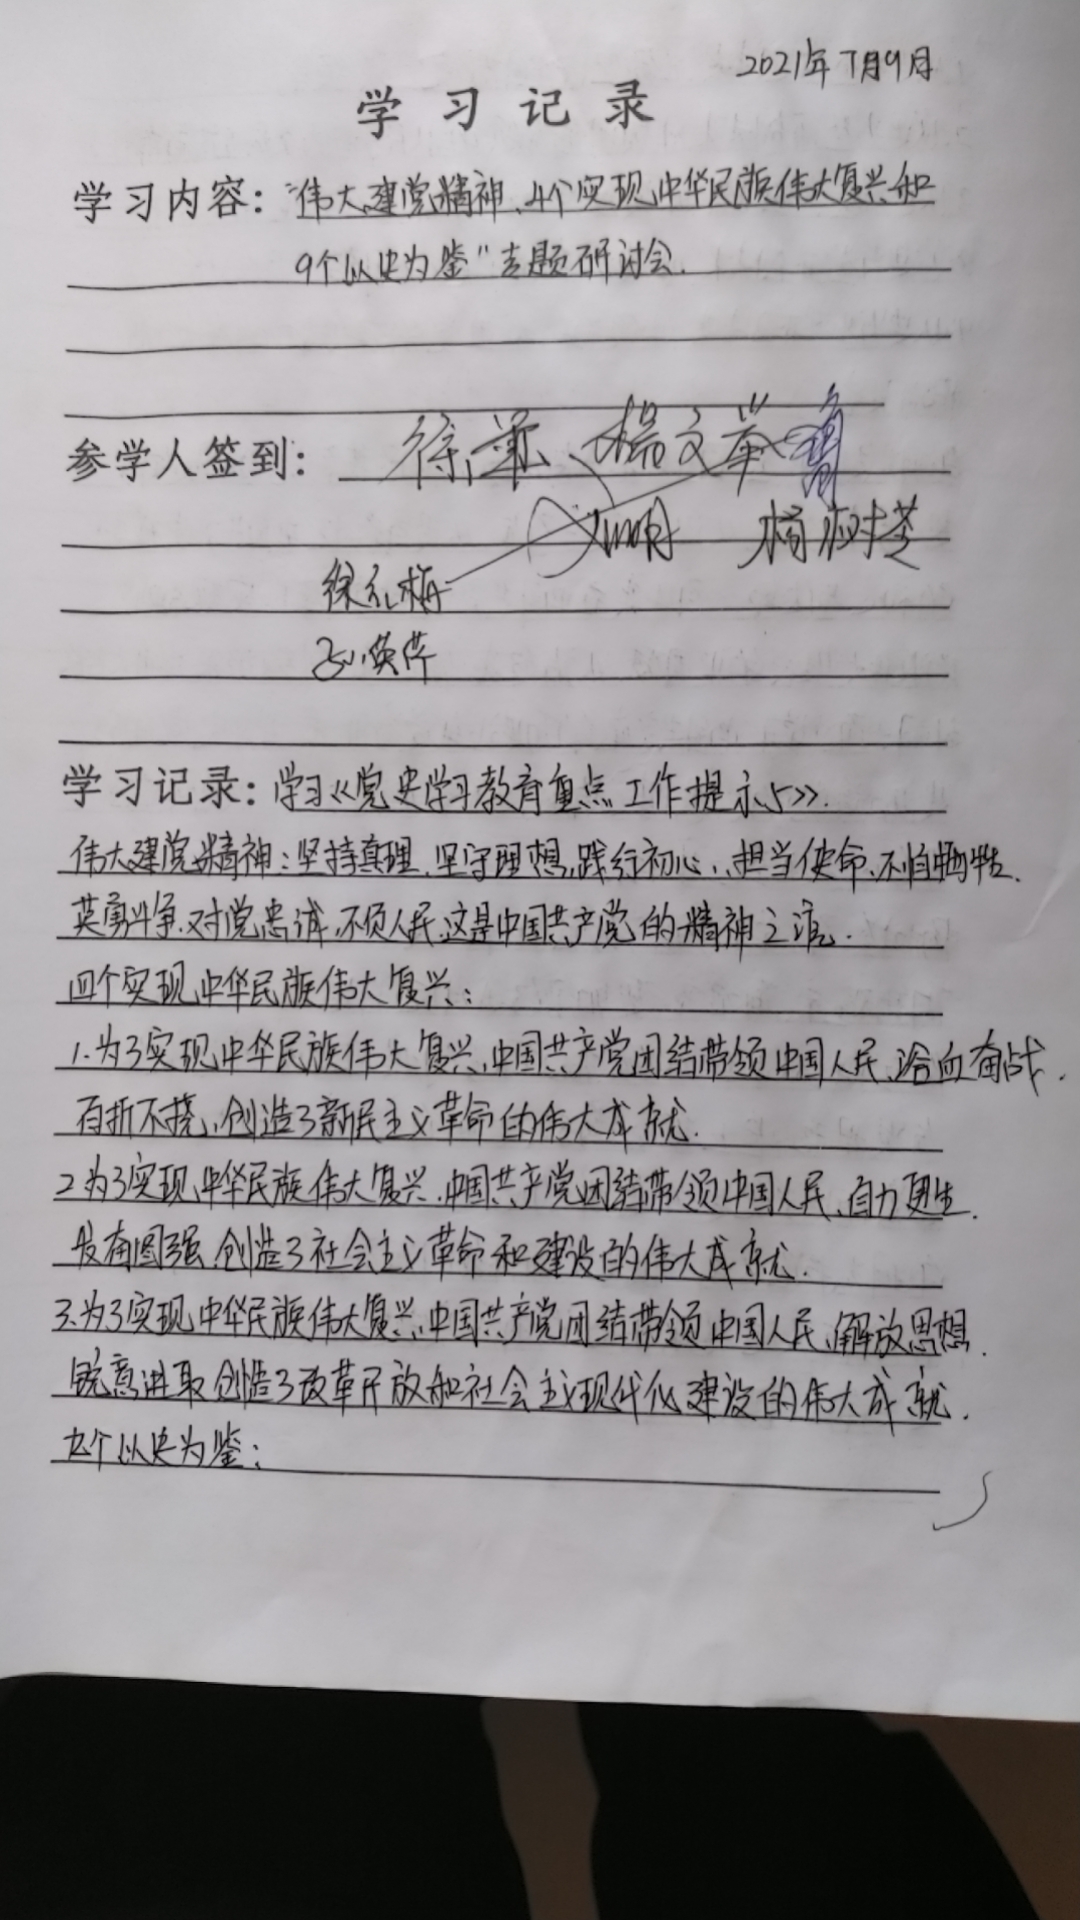 2021年7月9月
学习记录
学习内容："伟大建党精神、4个实现中华民族伟大复兴和
9个以史为鉴"专题研讨会.
参学人签到：杨文
杨树芝
徐红梅
英萍
学习记录：学习《党史学习教育重点工作提示5》.
伟大建党精神：坚持真理、坚守理想,践行初心、担当使命,不怕牺牲.
英勇斗争.对党忠诚,不负人民,这是中国共产党的精神之源.
四个实现中华民族伟大复兴：
1.为了实现中华民族伟大复兴,中国共产党团结带领中国人民、浴血奋战.
百折不挠,创造了新民主义革命的伟大成就.
2为了实现中华民族伟大复兴,中国共产党团结带领中国人民、自力更生.
发奋图强.创造了社会主义革命和建设的伟大成就.
3.为了实现中华民族伟大复兴,中国共产党团结带领中国人民、解放思想.
锐意进取,创造了改革开放和社会主义现代化建设的伟大成就.
九个以史为鉴：